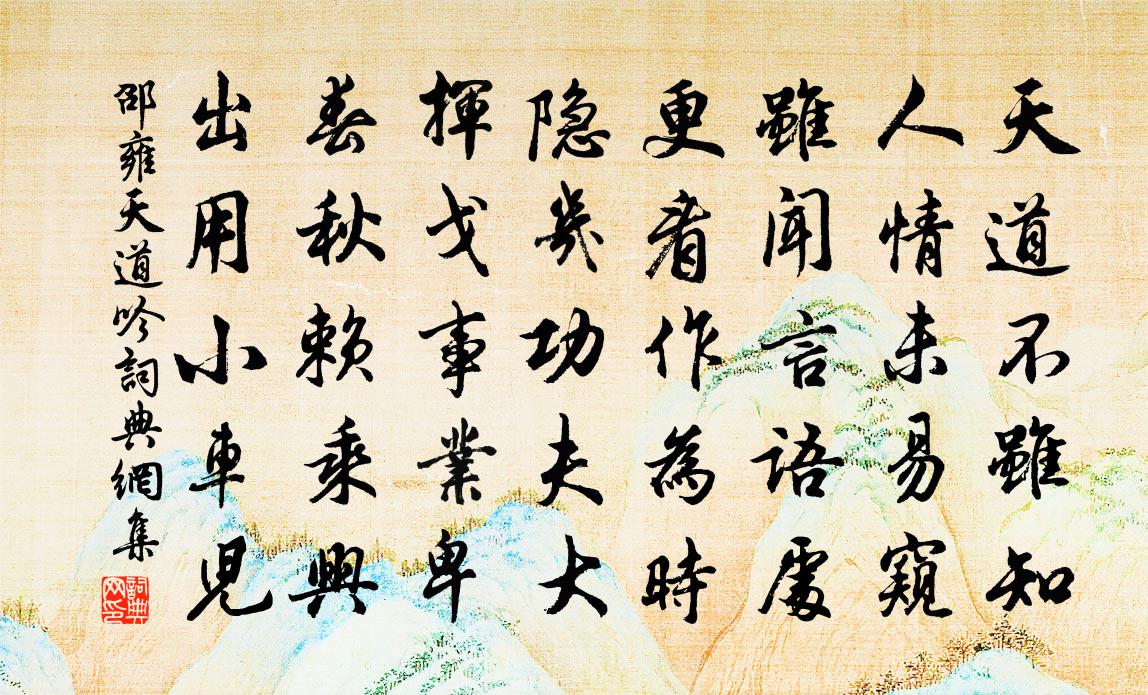 天道不雖知
人情未易窺
雖聞言語處
更看作為時
隐幾功夫大
揮戈事業卑
春秋賴乘興
出用小車兒
邵雍天道吟詞典網集
詞典
网印